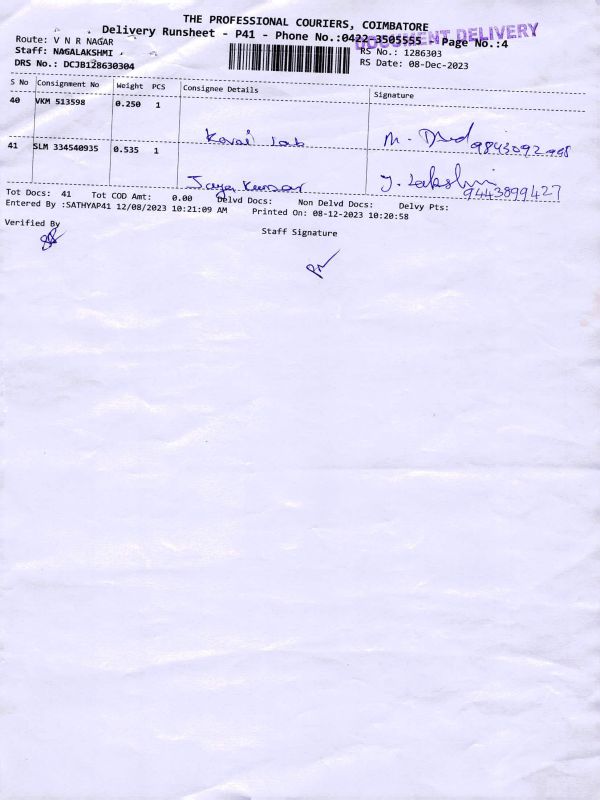 THE PROFESSIONAL COURIERS, COIMBATORE
Delivery Runsheet - P41 - Phone No.:0422-3505555 Page No.:4
DOCUMENT DELIVERY
Route: V N R NAGAR
RS No.: 1286303
Staff: NAGALAKSHMI .
RS Date: 08-Dec-2023
DRS No.: DCJB128630304
S No Consignment No Weight PCS Consignee Details Signature
40 VKM 513598 0.250 1
Kovai Lab M. 9843092
41 SLM 334540935 0.535 1
Jaya Kumar J. Lakshmi 9443899427
Tot Docs: 41 Tot COD Amt: 0.00 Delvd Docs: Non Delvd Docs: Delvy Pts:
Entered By :SATHYAP41 12/08/2023 10:21:09 AM Printed On: 08-12-2023 10:20:58
Verified By
Staff Signature